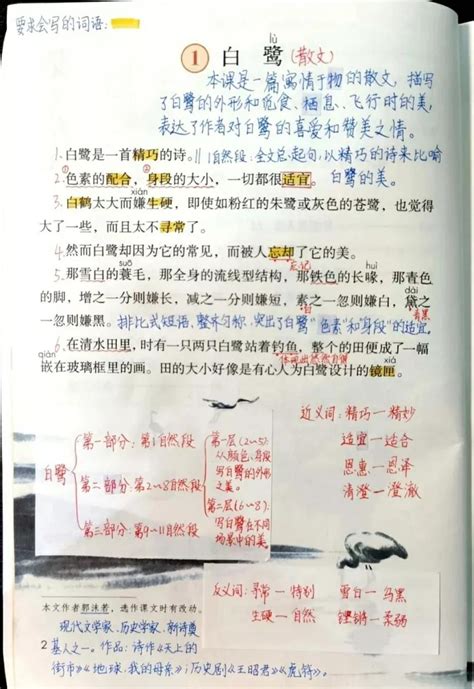 要求会写的词语:
lù
① 白 鹭 (散文)
本课是一篇寓情于物的散文,描写
了白鹭的外形和觅食、栖息、飞行时的美,
表达了作者对白鹭的喜爱和赞美之情。
1.白鹭是一首精巧的诗。∥1自然段:全文总起句,以精巧的诗来比喻
2.色素的配合,身段的大小,一切都很适宜。 白鹭的美。
xián
3.白鹤太大而嫌生硬,即使如粉红的朱鹭或灰色的苍鹭,也觉得
大了一些,而且太不寻常了。
4.然而白鹭却因为它的常见,而被人忘却了它的美。
suō 忘记 huì
5.那雪白的蓑毛,那全身的流线型结构,那铁色的长喙,那青色
dài
的脚,增之一分则嫌长,减之一分则嫌短,素之一忽则嫌白,黛之
青黑
一忽则嫌黑。排比式短语、整齐匀称,突出了白鹭"色素"和"身段"的适宜。
6.在清水田里,时有一只两只白鹭站着钓鱼,整个的田便成了一幅
qiàn xiá
嵌在玻璃框里的画。田的大小好像是有心人为白鹭设计的镜匣。
白鹭
第一部分:第1自然段
第二部分:第2~8自然段
第三部分:第9~11自然段
第一层(2~5):
从颜色、身段
写白鹭的外形
之美。
第二层(6~8):
写白鹭在不同
场景中的美。
近义词:精巧—精妙
适宜—适合
恩惠—恩泽
清澄—澄澈
反义词:寻常—特别 雪白—乌黑
生硬—自然 铿锵—柔弱
本文作者郭沫若,选作课文时有改动。
现代文学家、历史学家、新诗奠
2 基人之一。作品:诗作《天上的
街市》《地球,我的母亲》;历史剧《王昭君》《虎符》。